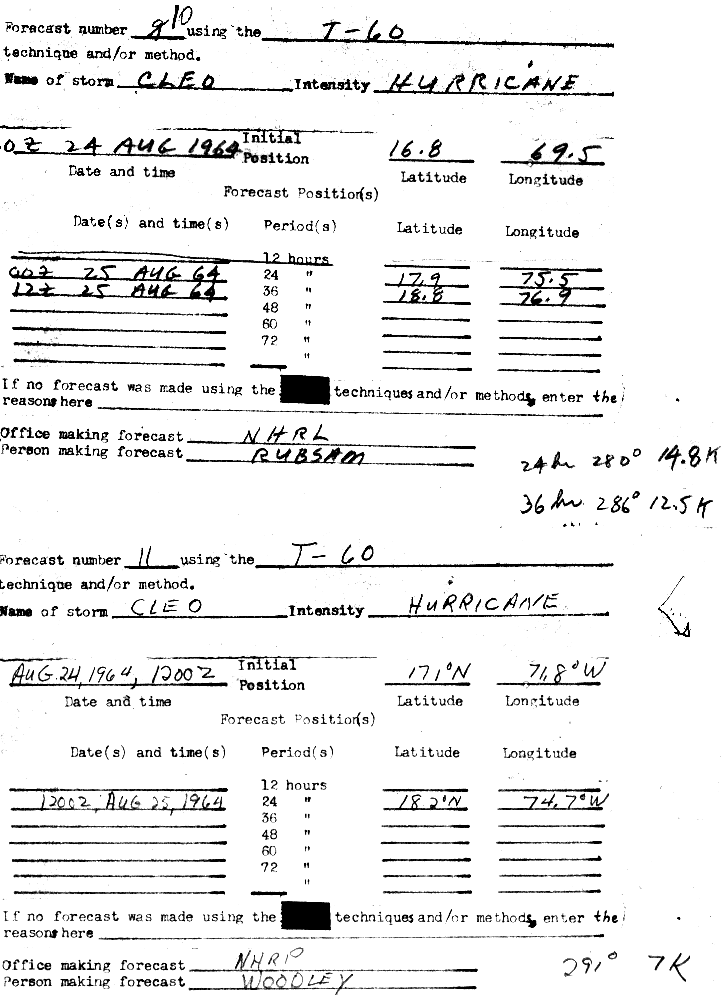 Forecast number 10 using the T-60
technique and/or method.
Name of storm CLEO Intensity HURRICANE
0Z 24 AUG 1964 Initial Position 16.8 69.5
Date and time Latitude Longitude
Forecast Position(s)
Date(s) and time(s) Period(s) Latitude Longitude
12 hours
00Z 25 AUG 64 24 " 17.9 75.5
12Z 25 AUG 64 36 " 18.8 76.9
48 "
60 "
72 "
"
If no forecast was made using the techniques and/or methods, enter the
reasons here
Office making forecast NHRL
Person making forecast RUBSAM
24 hr 280° 14.8K
36 hr 286° 12.5K
Forecast number 11 using the T-60
technique and/or method.
Name of storm CLEO Intensity HURRICANE
AUG 24, 1964, 1200Z Initial Position 17.1°N 71.8°W
Date and time Latitude Longitude
Forecast Position(s)
Date(s) and time(s) Period(s) Latitude Longitude
12 hours
1200Z, AUG 25, 1964 24 " 18.2°N 74.7°W
36 "
48 "
60 "
72 "
"
If no forecast was made using the techniques and/or methods, enter the
reasons here
Office making forecast NHRP
Person making forecast WOODLEY
291° 7K